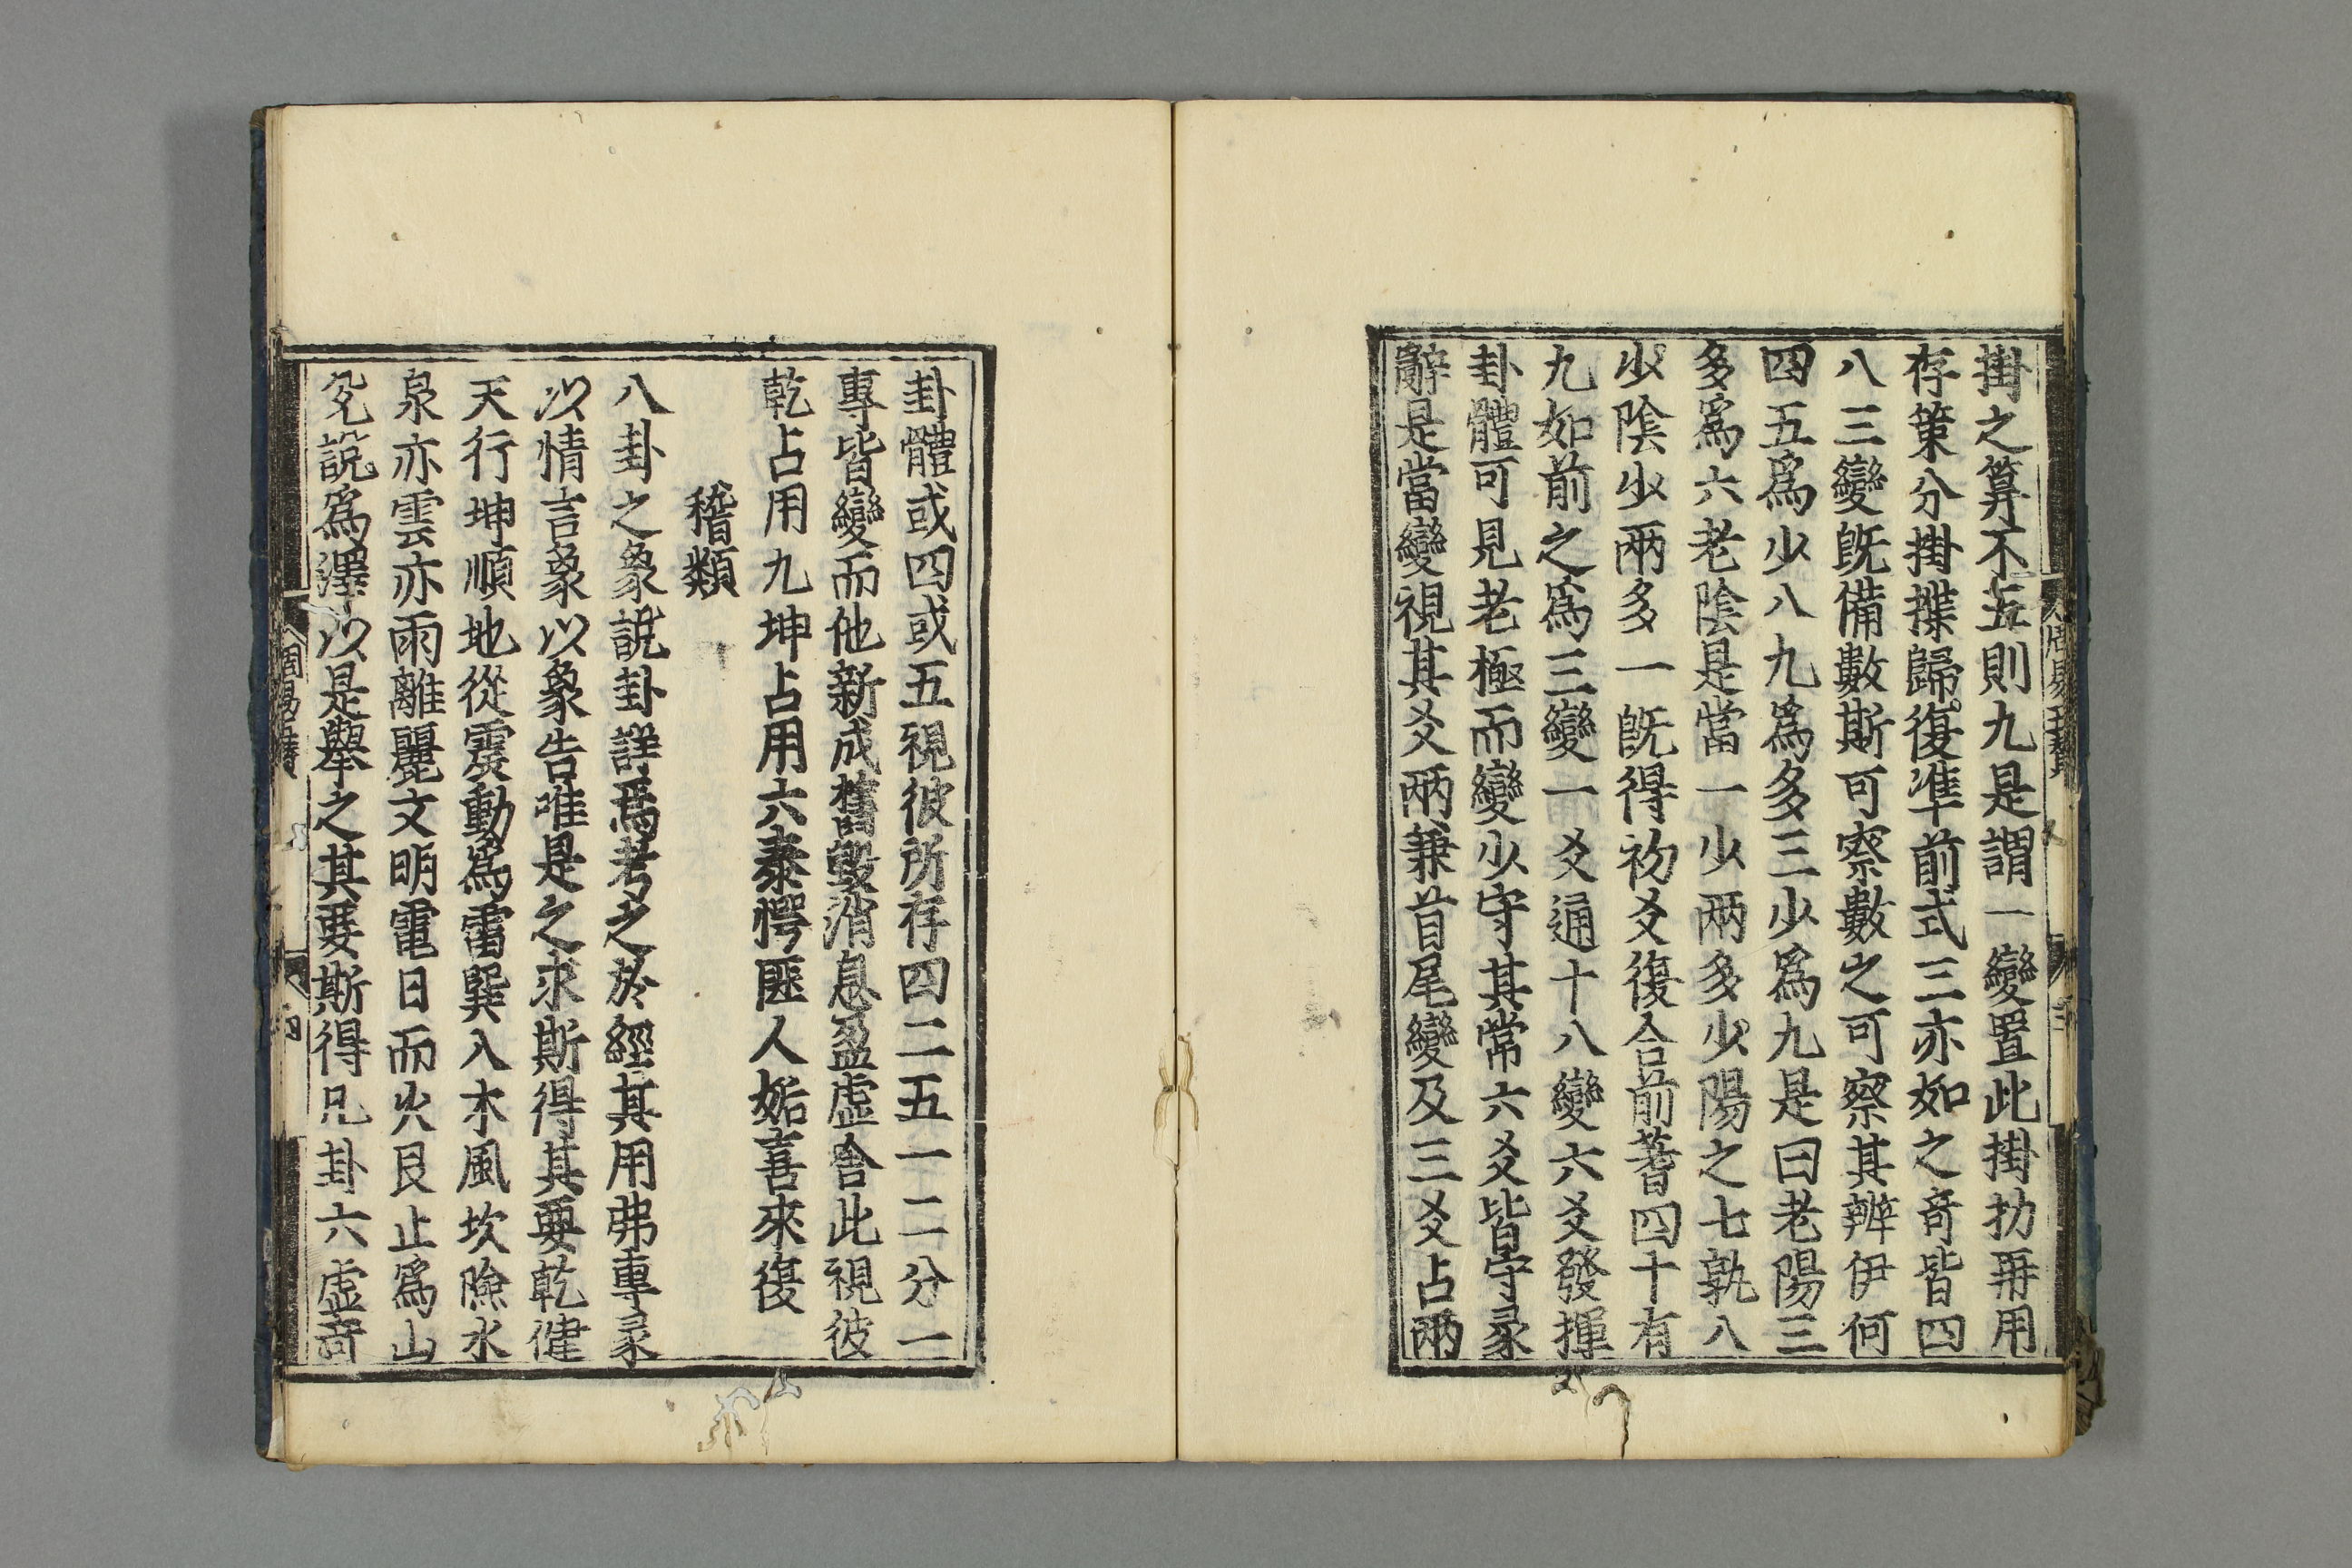 掛之筭不五則九是謂一變置此掛扐再用
存策分掛揲歸復準前式三亦如之竒皆四
八三變旣備數斯可察數之可察其辨伊何
四五爲少八九爲多三少爲九是曰老陽三
多爲六老陰是當一少兩多少陽之七孰八
少陰少兩多一旣得初爻復合前蓍四十有
九如前之爲三變一爻通十八變六爻發揮
卦體可見老極而變少守其常六爻皆守彖
辭是當變視其爻兩兼首尾變及三爻占兩
周易五贊
三
卦體或四或五視彼所存四二五一二分一
專皆變而他新成舊毀消息盈虛舍此視彼
乾占用九坤占用六泰愕匪人姤喜來復
稽類
八卦之象說卦詳焉考之於經其用弗專彖
以情言象以象告唯是之求斯得其要乾健
天行坤順地從震動爲雷巽入木風坎險水
泉亦雲亦雨離麗文明電日而火艮止爲山
兌說爲澤以是舉之其要斯得凡卦六虛竒
周易五贊
四